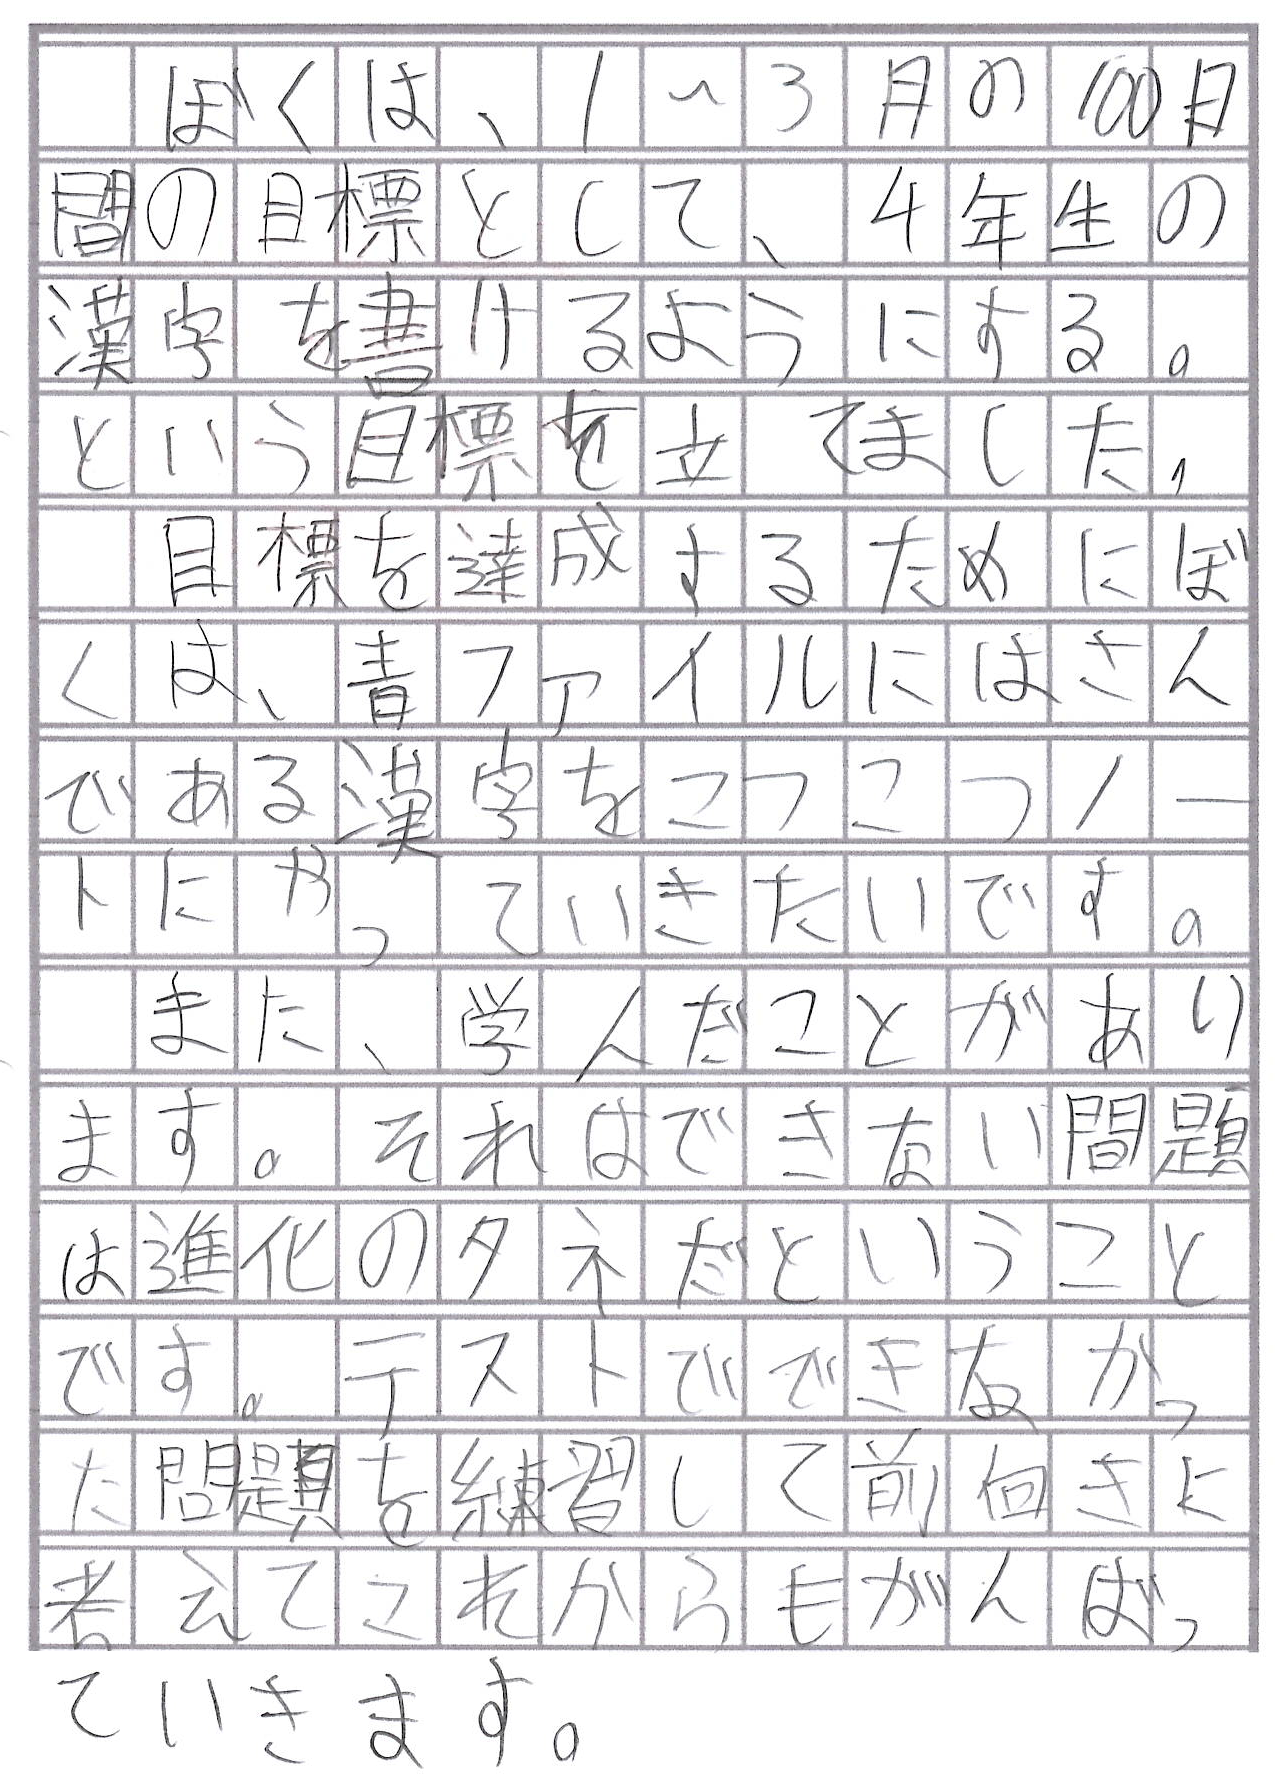 ぼくは、1〜3月の100日
間の目標として、4年生の
漢字を書けるようにする。
という目標を立てました。
　目標を達成するためにぼ
くは、青ファイルにはさん
である漢字をこつこつノー
トにやっていきたいです。
　また、学んだことがあり
ます。それはできない問題
は進化のタネだということ
です。テストでできなかっ
た問題を練習して前向きに
考えてこれからもがんばっ
ていきます。